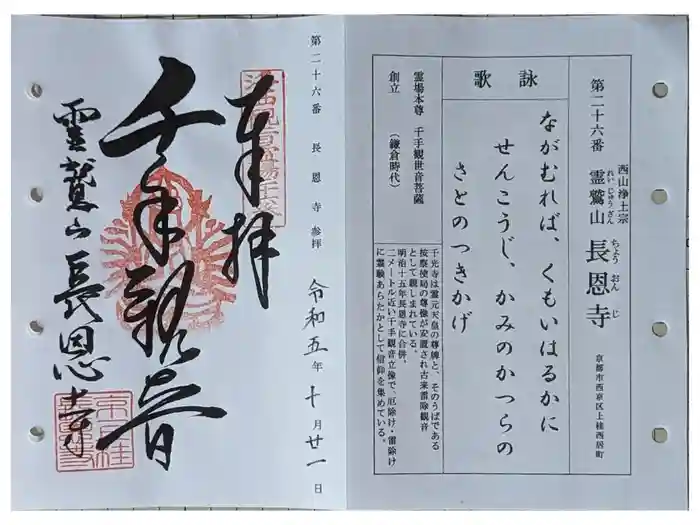 第二十六番
西山浄土宗
霊鷲山 長恩寺
れいじゅうざん ちょうおんじ
京都市西京区上桂西居町
詠歌
ながむれば、くもいはるかに
せんこうじ、かみのかつらの
さとのつきかげ
霊場本尊 千手観世音菩薩
創立 (鎌倉時代)
千光寺は霊元天皇の尊牌と、そのうばである
按察使局の尊像が安置され古来雷除観音
として親しまれている。
明治十五年長恩寺に合併。
二メートル近い千手観音立像で、厄除け・雷除け
に霊験あらたかとして信仰を集めている。
第二十六番 長恩寺参拝 令和五年十月廿一日
奉拝
千手観音
霊鷲山長恩寺